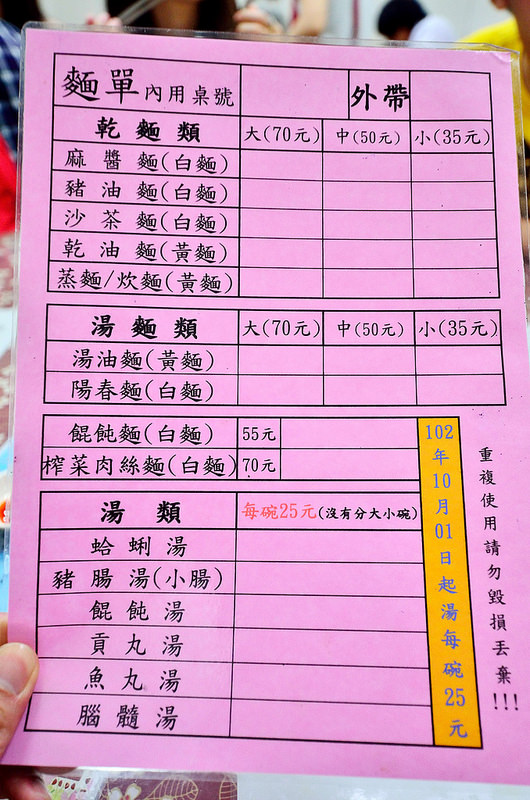 麵單內用桌號 外帶
乾麵類 大(70元) 中(50元) 小(35元)
麻醬麵(白麵)
豬油麵(白麵)
沙茶麵(白麵)
乾油麵(黃麵)
蒸麵/炊麵(黃麵)
湯麵類 大(70元) 中(50元) 小(35元)
湯油麵(黃麵)
陽春麵(白麵)
餛飩麵(白麵) 55元
榨菜肉絲麵(白麵) 70元
湯類 每碗25元(沒有分大小碗)
蛤蜊湯
豬腸湯(小腸)
餛飩湯
貢丸湯
魚丸湯
腦髓湯
102年10月01日起湯每碗25元
重複使用請勿毀損丟棄!!!